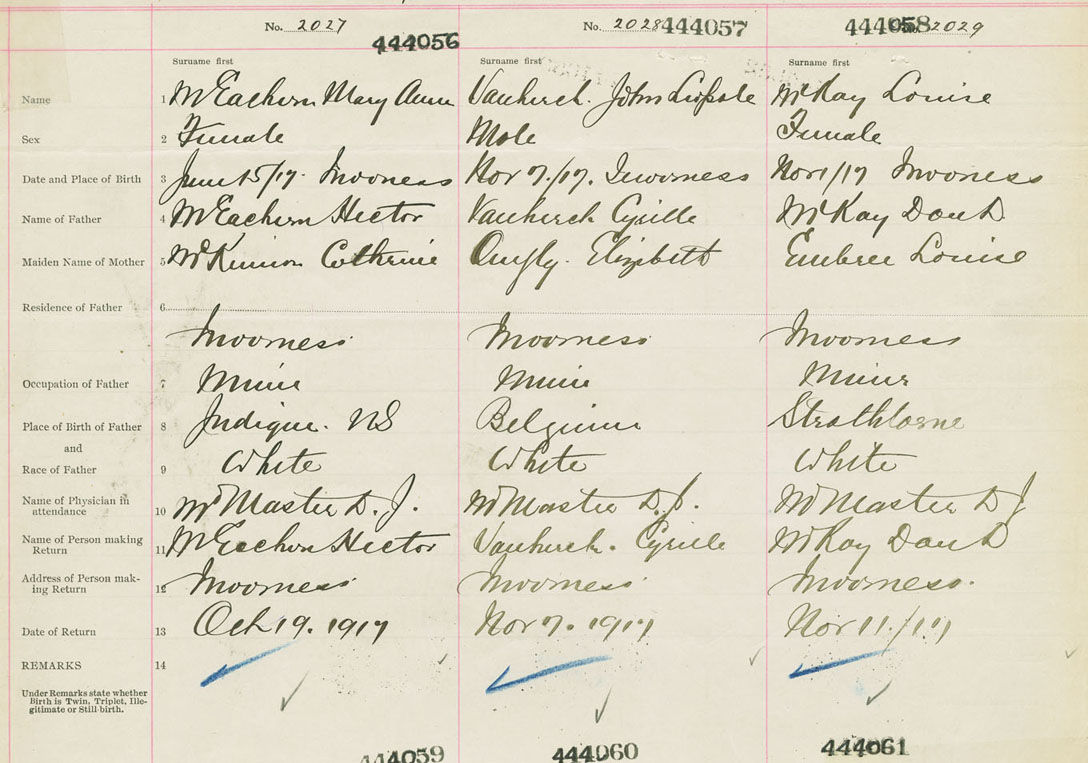 No. 2027 No. 2028 444057 444058 2029
444056
Surname first Surname first Surname first
Name 1 McEachern Mary Ann Vanherck. John McKay Louise
Sex 2 Female Male Female
Date and Place of Birth 3 June 15/17. Inverness Nov 7/17. Inverness Nov 1/17 Inverness
Name of Father 4 McEachern Hector Vanherck Cyrille McKay
Maiden Name of Mother 5 McKinnon Catherine Elizabeth Embree Louise
Residence of Father 6
Inverness Inverness Inverness
Occupation of Father 7 Miner Miner Miner
Place of Birth of Father 8 Judique. NS Belgium Strathlorne
and
Race of Father 9 White White White
Name of Physician in
attendance 10 McMaster D. J. McMaster D. J. McMaster D J
Name of Person making
Return 11 McEachern Hector Vanherck. Cyrille McKay
Address of Person mak-
ing Return 12 Inverness Inverness Inverness.
Date of Return 13 Oct 19. 1917 Nov 7. 1917 Nov 11/17
REMARKS 14
Under Remarks state whether
Birth is Twin, Triplet, Ille-
gitimate or Still-birth.
444059 444060 444061